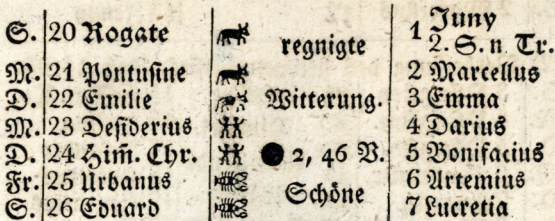 S. 20 Rogate regnigte 1 Juny 2. S. n. Tr.
M. 21 Pontusine 2 Marcellus
D. 22 Emilie Witterung. 3 Emma
M. 23 Desiderius 4 Darius
D. 24 Him̄. Chr. ● 2, 46 V. 5 Bonifacius
Fr. 25 Urbanus Schöne 6 Artemius
S. 26 Eduard 7 Lucretia